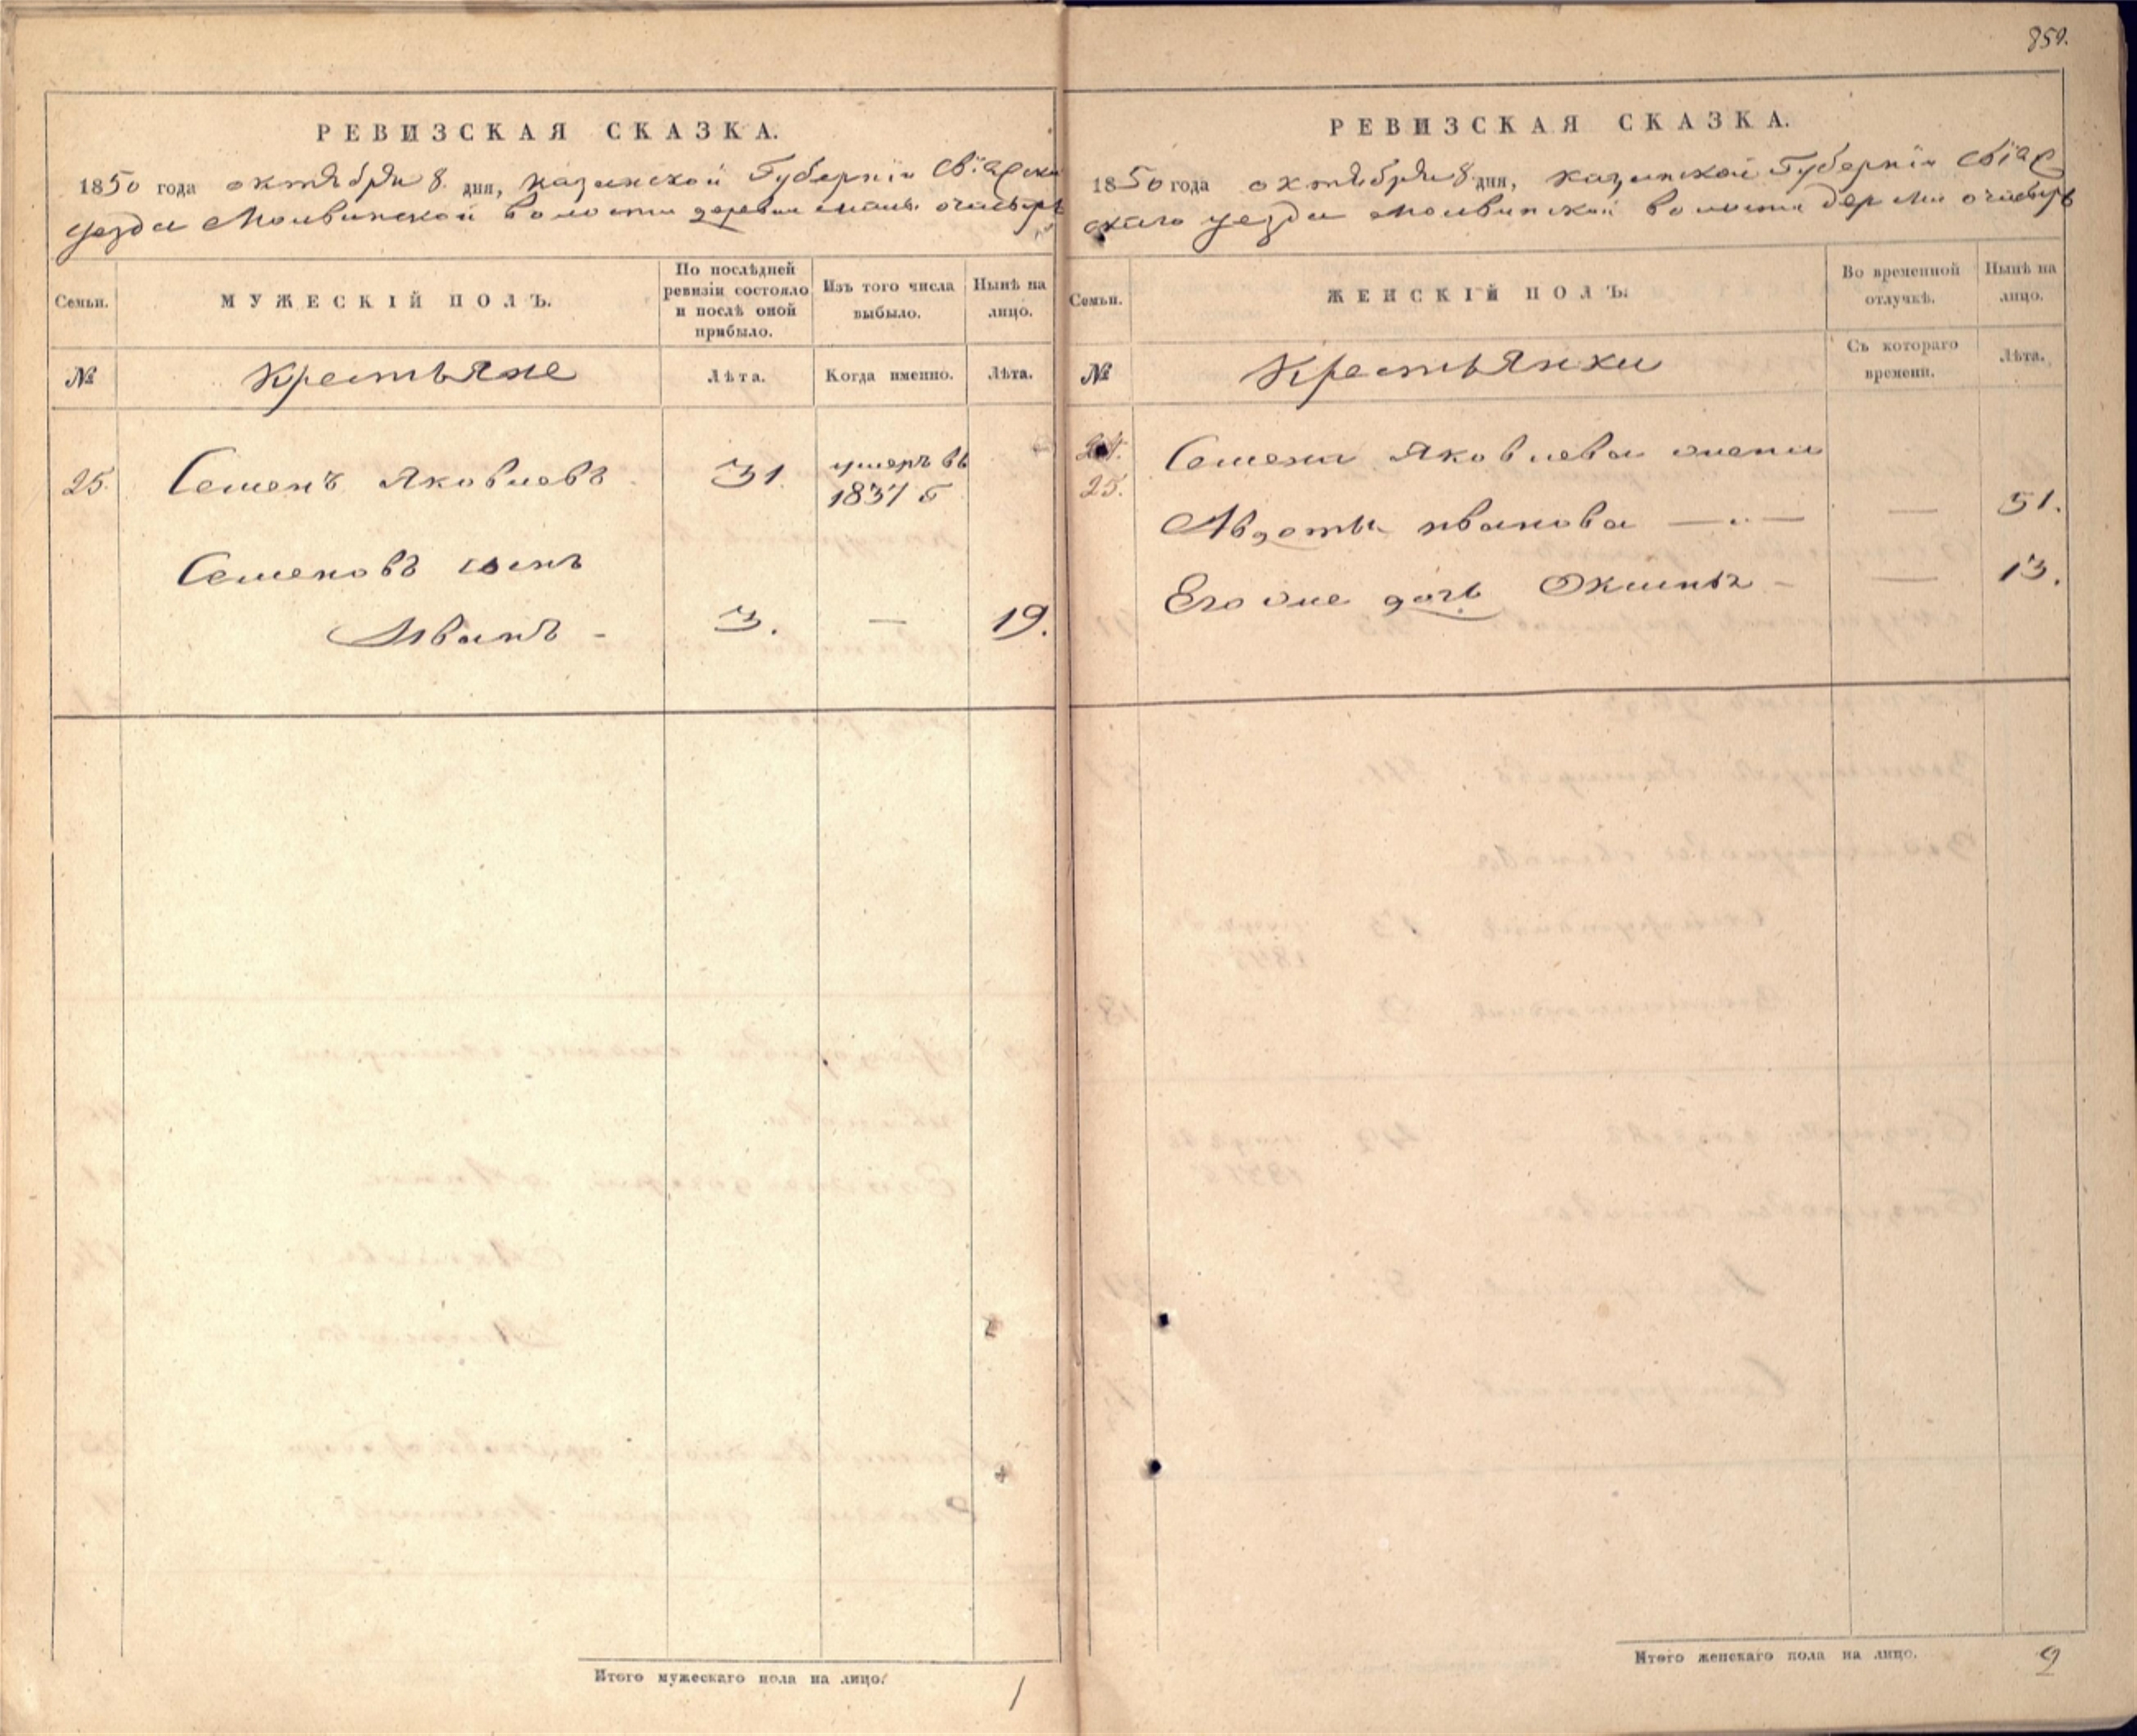 859.
РЕВИЗСКАЯ СКАЗКА.
1850 года октября 8. дня, казанской Губернiи Свiяжска
уезда Молвинской волости деревни малы. очасырь
Семьи.
МУЖЕСКIЙ ПОЛЪ.
По послѣдней
ревизiи состояло
и послѣ оной
прибыло.
Изъ того числа
выбыло.
Нынѣ на
лицо.
№
Крестьяне
Лѣта.
Когда именно.
Лѣта.
25.
Семенъ Яковлевъ
31.
умеръ въ
1837 г
Семеновъ сынъ
Иванъ -
3.
—
19.
Итого мужескаго пола на лицо:
1
РЕВИЗСКАЯ СКАЗКА.
1850 года октября 8. дня, казанской Губернiи Свiяж
скаго уезда молвинской волости дер
Семьи.
ЖЕНСКIЙ ПОЛЪ.
Во временной
отлучкѣ.
Нынѣ на
лицо.
№
Крестьянки
Съ котораго
времени.
Лѣта.
25.
Семена Яковлева жена
Авдотья иванова —"—
—
51.
Его же дочь
—
13.
Итого женскаго пола на лицо.
2